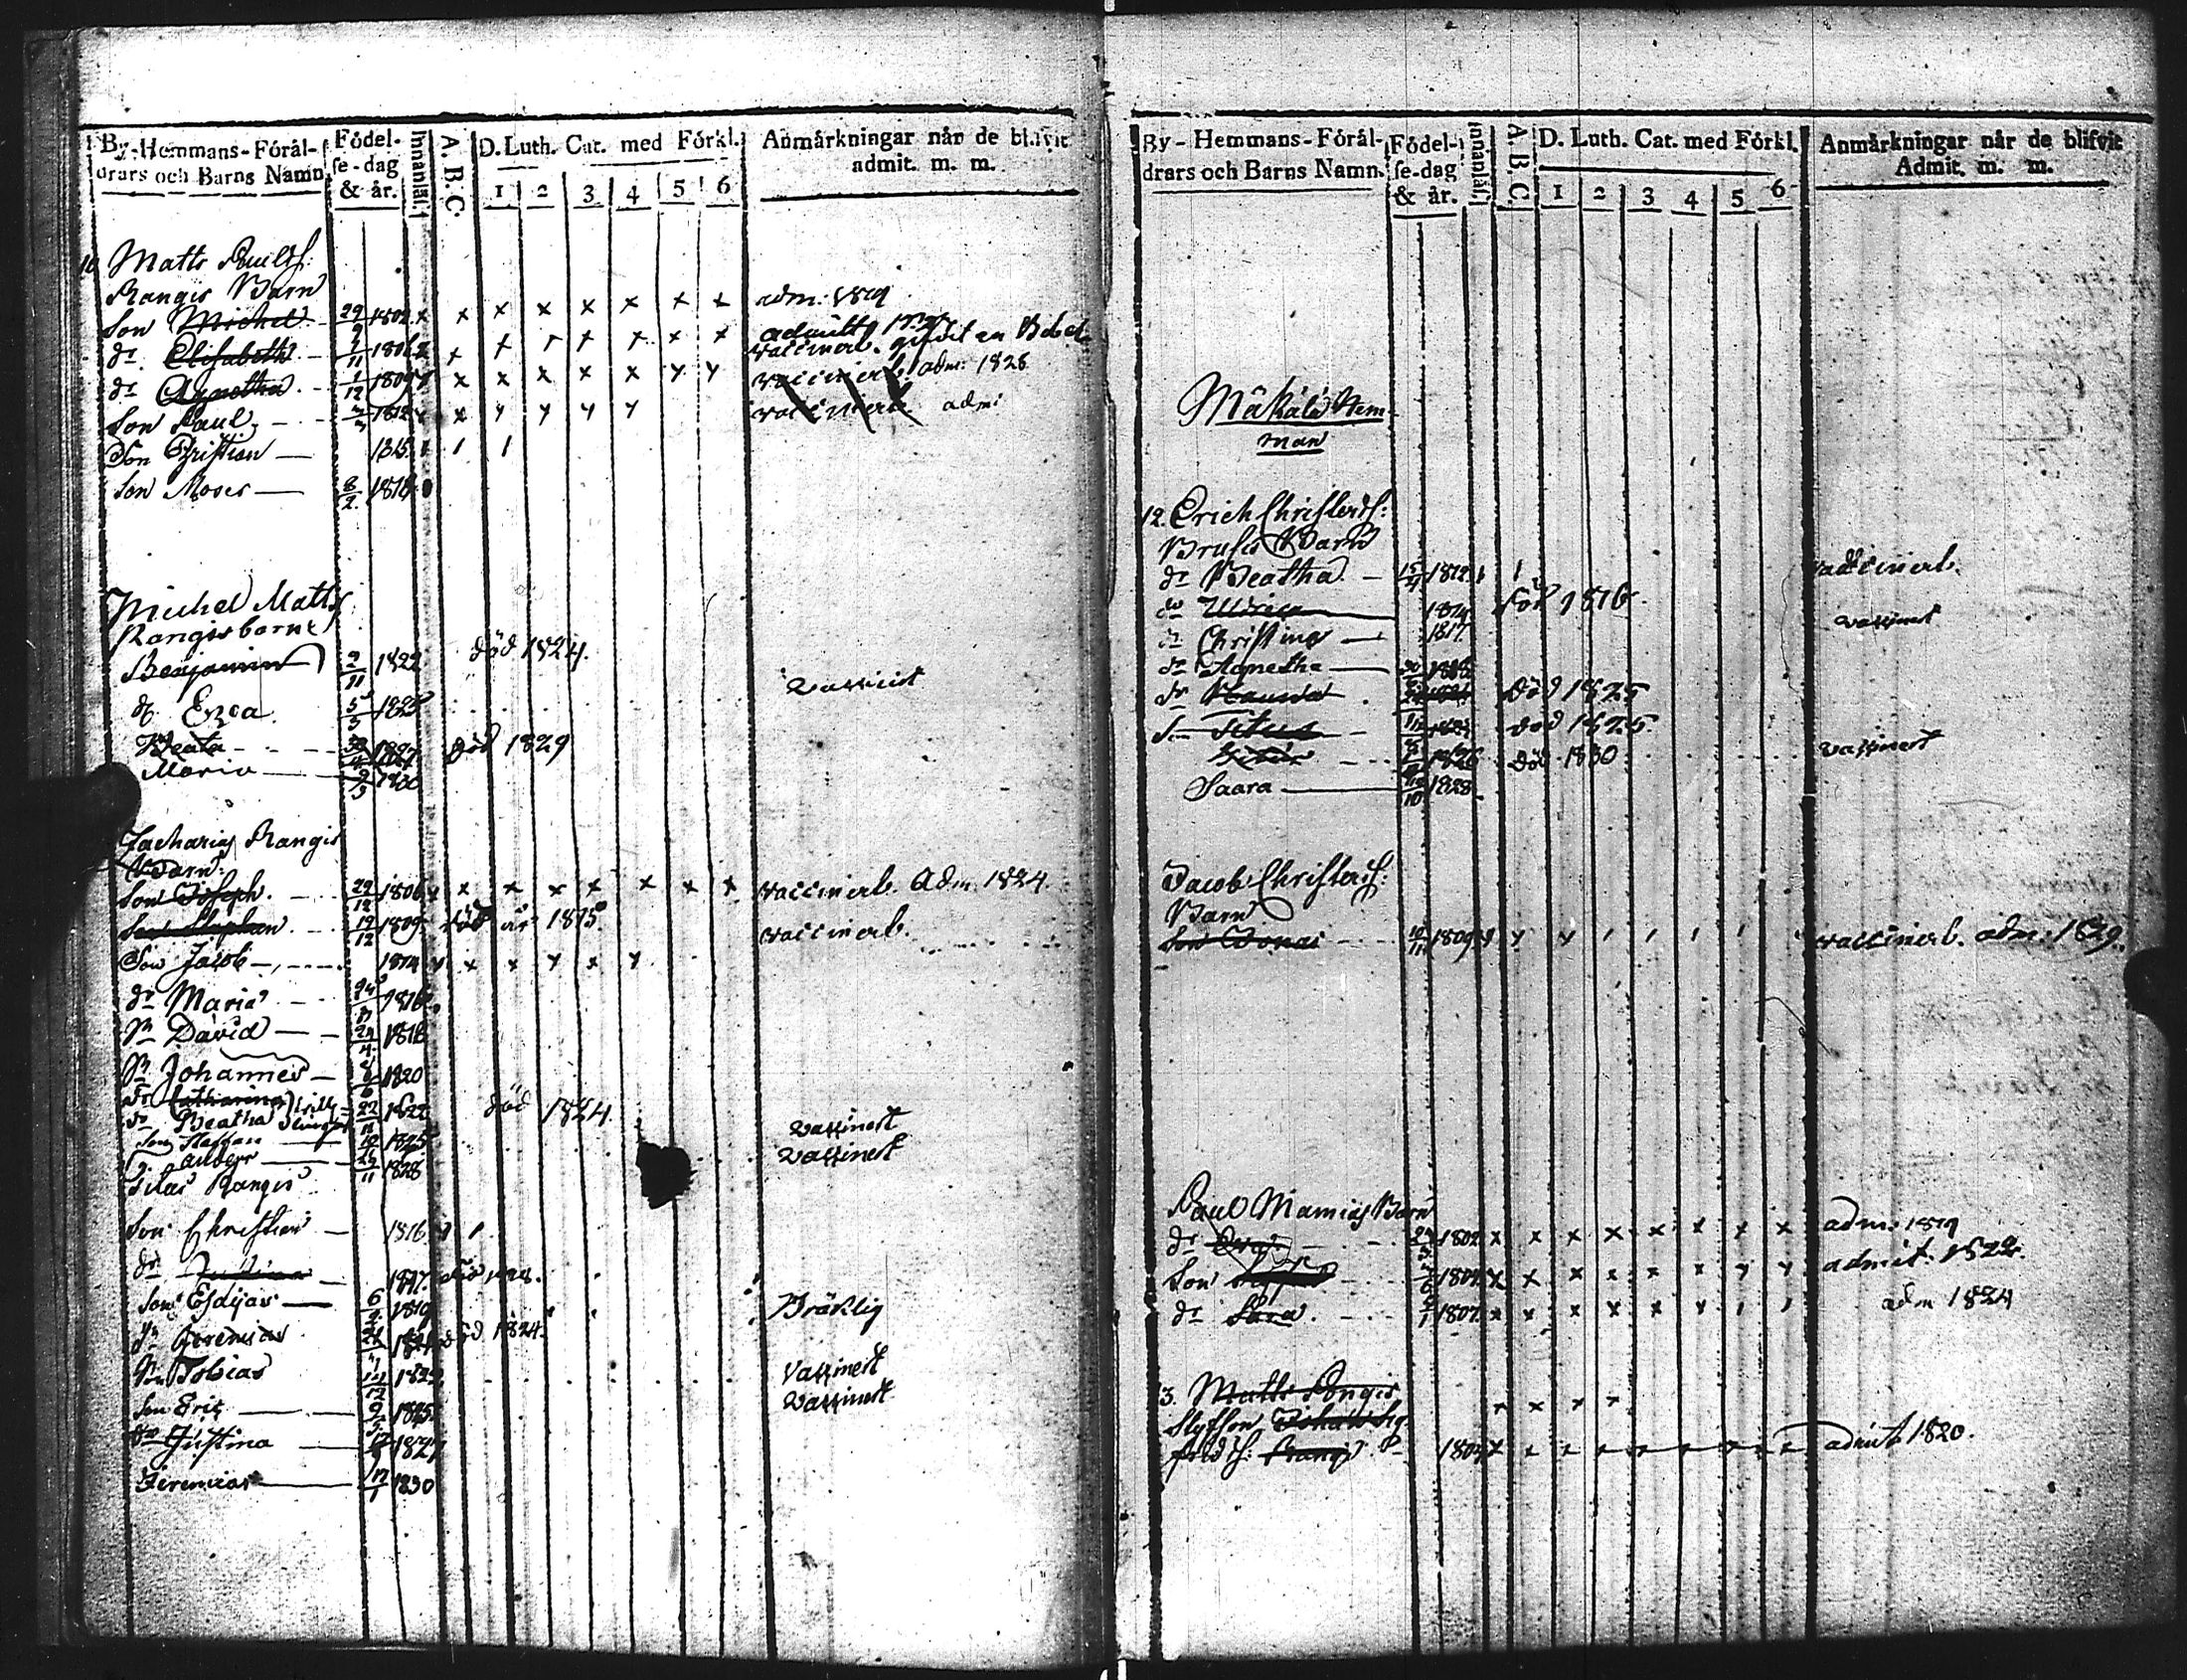 By-Hemmans-Förål-
drars och Barns Namn
Fódel-
se-dag
& år.
Innanläs.
A. B. C.
D. Luth. Cat. med Förkl.
1 2 3 4 5 6
Anmårkningar når de blifvit
admit. m. m.
10 Matts
Rangis Barn
Son Michel 29/9 1802 x x x x x x x x adm: 1819
dr. Elisabeth 1/11 1806 vaccinerb.
dr Agnetha 1/12 1809 x x x x x y y vaccinerb. adm: 1826
Son Paul 1812 x y y y y vaccinerb. adm:
Son Christian 1815 1 1 1
Son Moses 8/2 1818
Michel Matts
Rangis barn
Benjamin 9/11 1822 död 1824.
dr Ewa 5/3 1825 vaxinert
Beata 1827 död 1829
Maria 1830
Zacharias Rangis
Barn:
Son Joseph. 22/12 1806 x x x x x x x x vaccinerb. Adm. 1824
Son Stephan 19/12 1809 död år 1815 vaccinerb.
Son Jacob 1814 y x x y x y
dr Maria 24 1816
Sn David 24/4 1818
Sn Johannes 1820
dr Catharina 22/11 1822 död 1824
dr Beatha
Son Staffan 1825 vaxinert
1828 vaxinert
Silas Rangis
Son Christian 1816
dr 1817.
Son Esaijas 6 1819 Bräklig
Jeremias 1821 död 1824.
Sn Tobias 14/12 1822 vaxinert
Son Eric 9/3 1825 vaxinert
dr Justina 1827
Jeremias 17/1 1830
By-Hemmans-Förål-
drars och Barns Namn.
Fódel-
se-dag
& år.
Innanläs.
A. B. C.
D. Luth. Cat. med Fórkl.
1 2 3 4 5 6
Anmårkningar når de blifvit
Admit. m. m.
Måkälä Hem
man
12. Erich Christers:
Brusis Barn
dr Beatha 15/4 1812 1 1 vaccinerb.
dr Ulrica 1814 död 1816
dr Christina 1817 vaxinert
dr Agnetha 1818
dr död 1825
S. Titus död 1825
1826 död 1830 vaxinert
Saara 10 1828
Jacob Christers:
Barn
Son Jonas 10/11 1809 vaccinerb. adm: 1829.
Paul Mamias Barn
dr Eva 1802 x x x x x x x x adm: 1819
Son 1804 x x x x x x y y admit. 1822
dr Sara 1807 x x x x x x 1 1 adm 1824
13. Matts Rongis
Styfson Johan
freds: Rangi 1804 admit 1820.